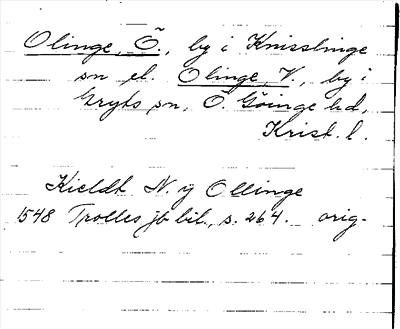 Olinge, Ö., by i Knisslinge
sn el. Olinge, V., by i
Gryts sn, Ö. Göinge hd,
Krist. l.
Kieldt N. y Ollinge
1548 Trolles jb bil., s. 264. orig.